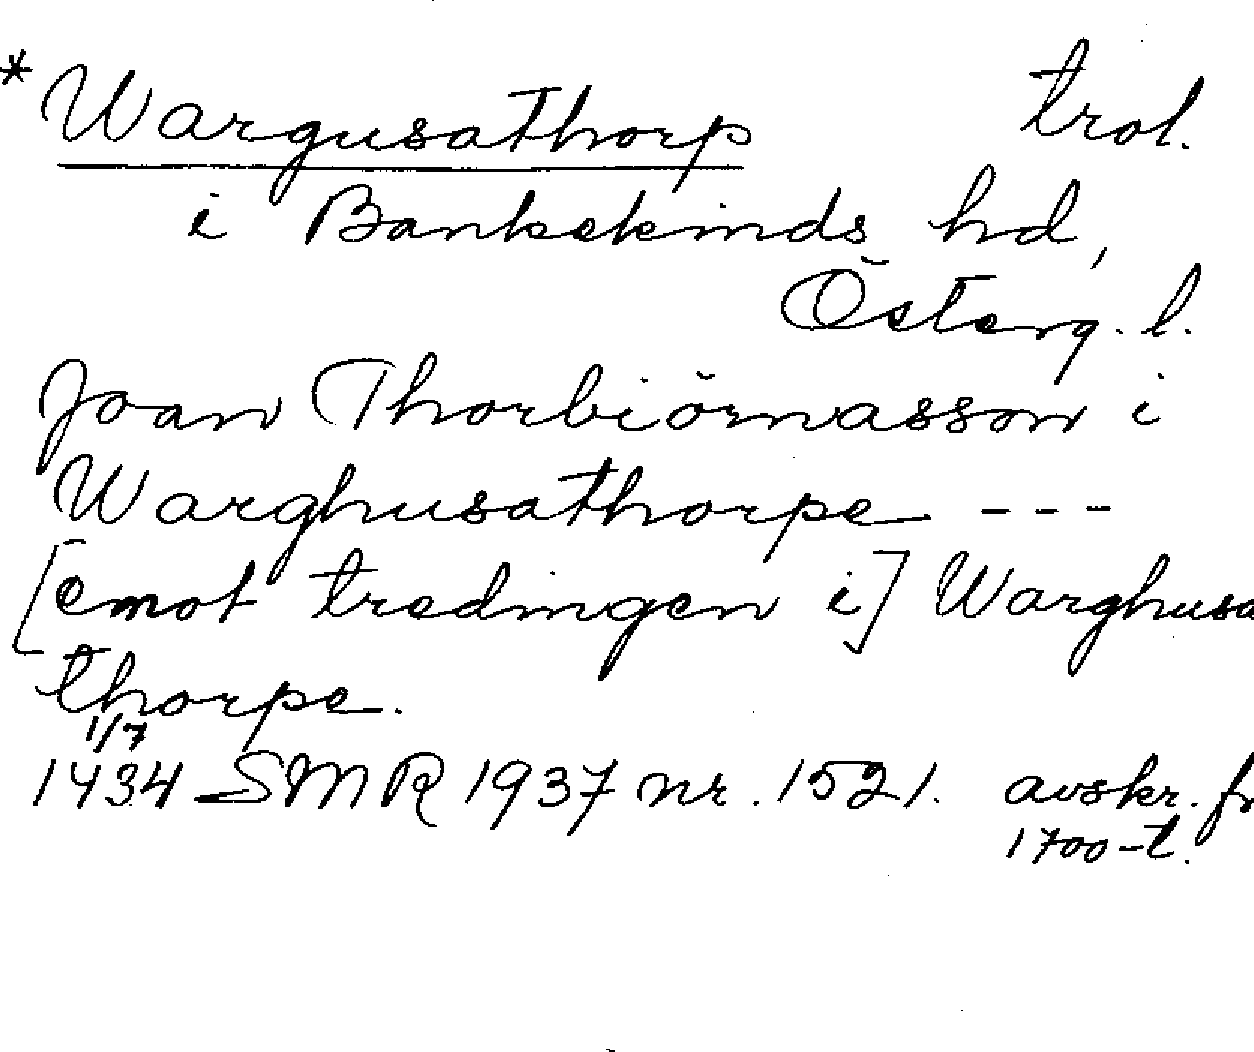 *Wargusathorp trol.
i Bankekinds hd,
Österg. l.
Joan Thorbiörnasson i
Warghusathorpe - - -
[emot tredingen i] Warghusa
thorpe.
1/7
1434 SMR 1937 nr. 1521. avskr. fr
1700-t.